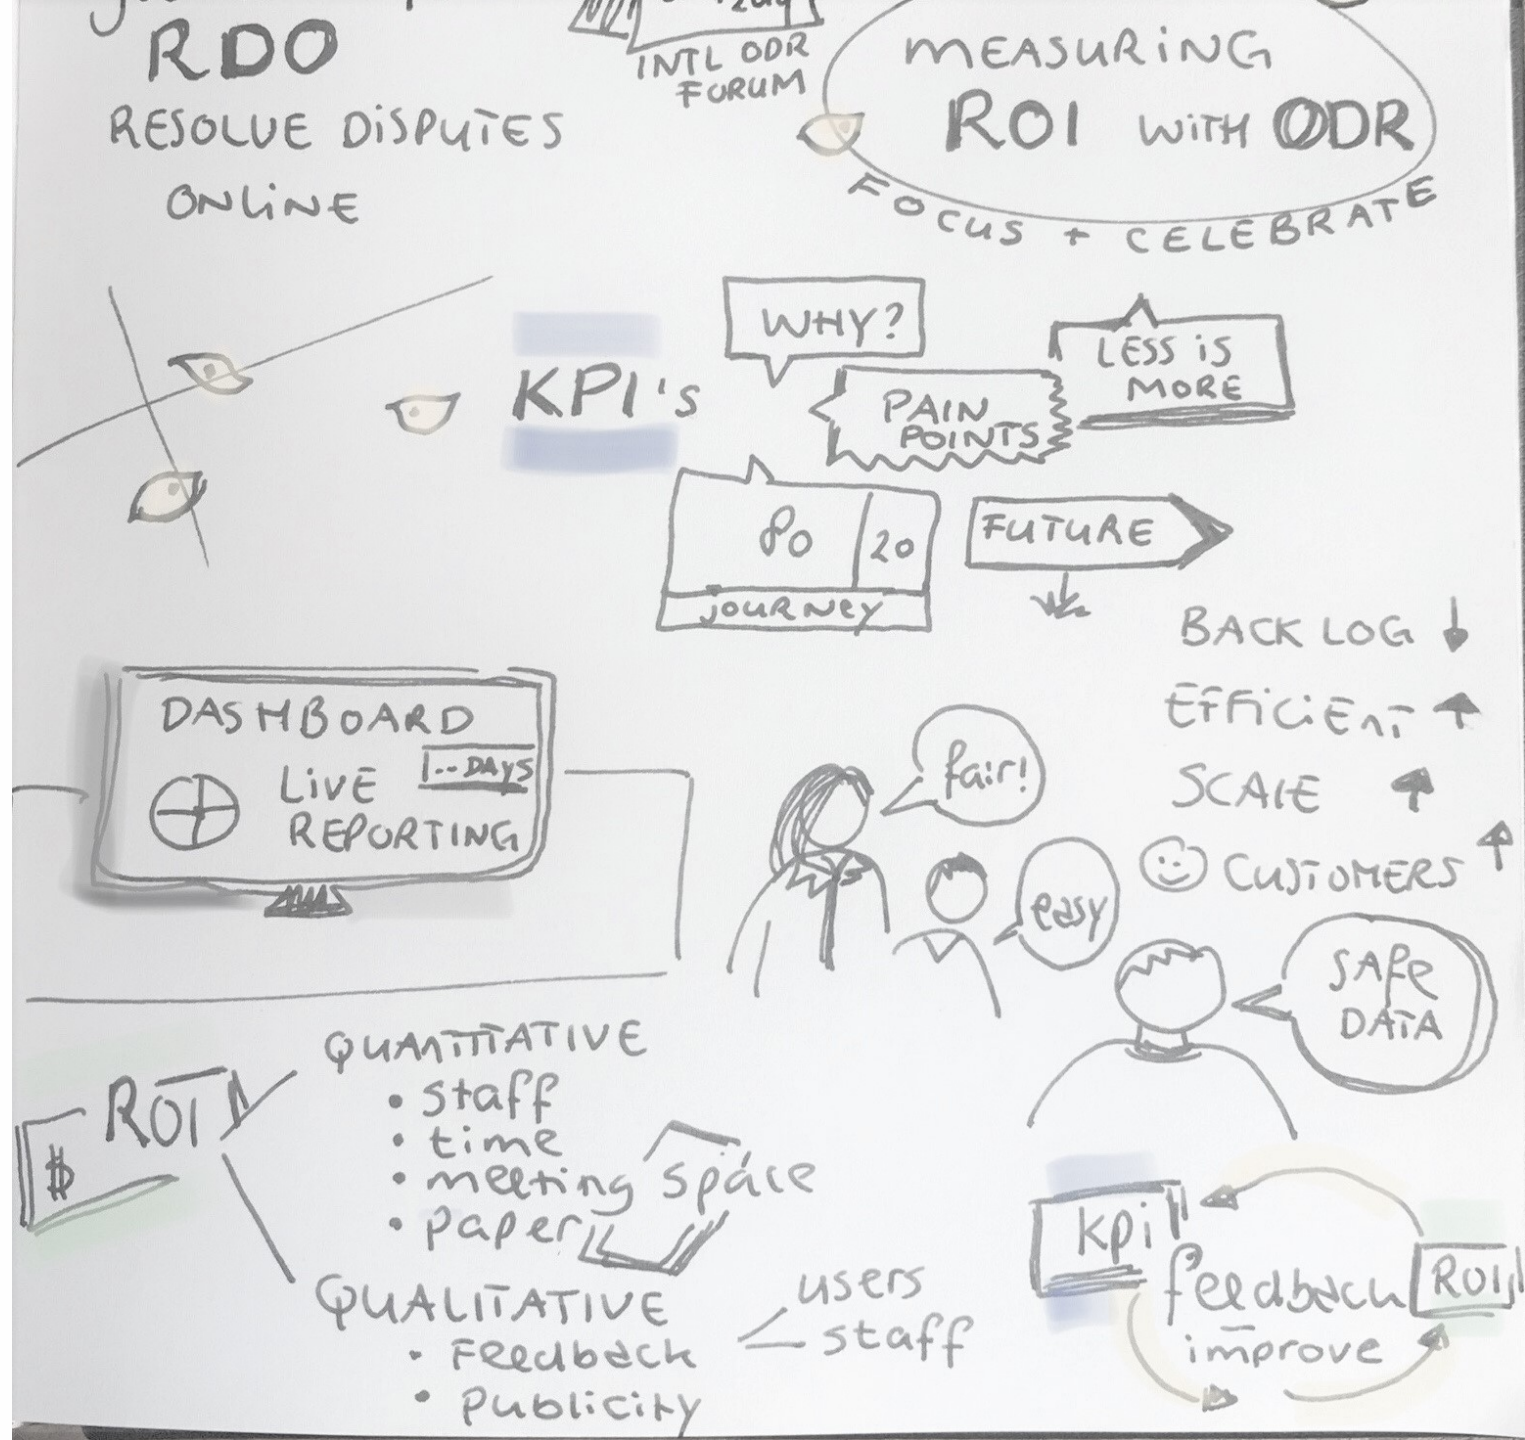 RDO
RESOLVE DISPUTES
ONLINE
INTL ODR
FORUM
MEASURING
ROI WITH ODR
FOCUS + CELEBRATE
KPI's
WHY?
PAIN
POINTS
LESS IS
MORE
80 20
JOURNEY
FUTURE
BACK LOG ↓
EFFICIENT ↑
SCALE ↑
CUSTOMERS ↑
DASHBOARD
1.. DAYS
LIVE
REPORTING
fair!
easy
SAFE
DATA
$
ROI
QUANTITATIVE
• staff
• time
• meeting space
• paper
QUALITATIVE
• Feedback
• Publicity
users
staff
kpi
feedback
improve
ROI